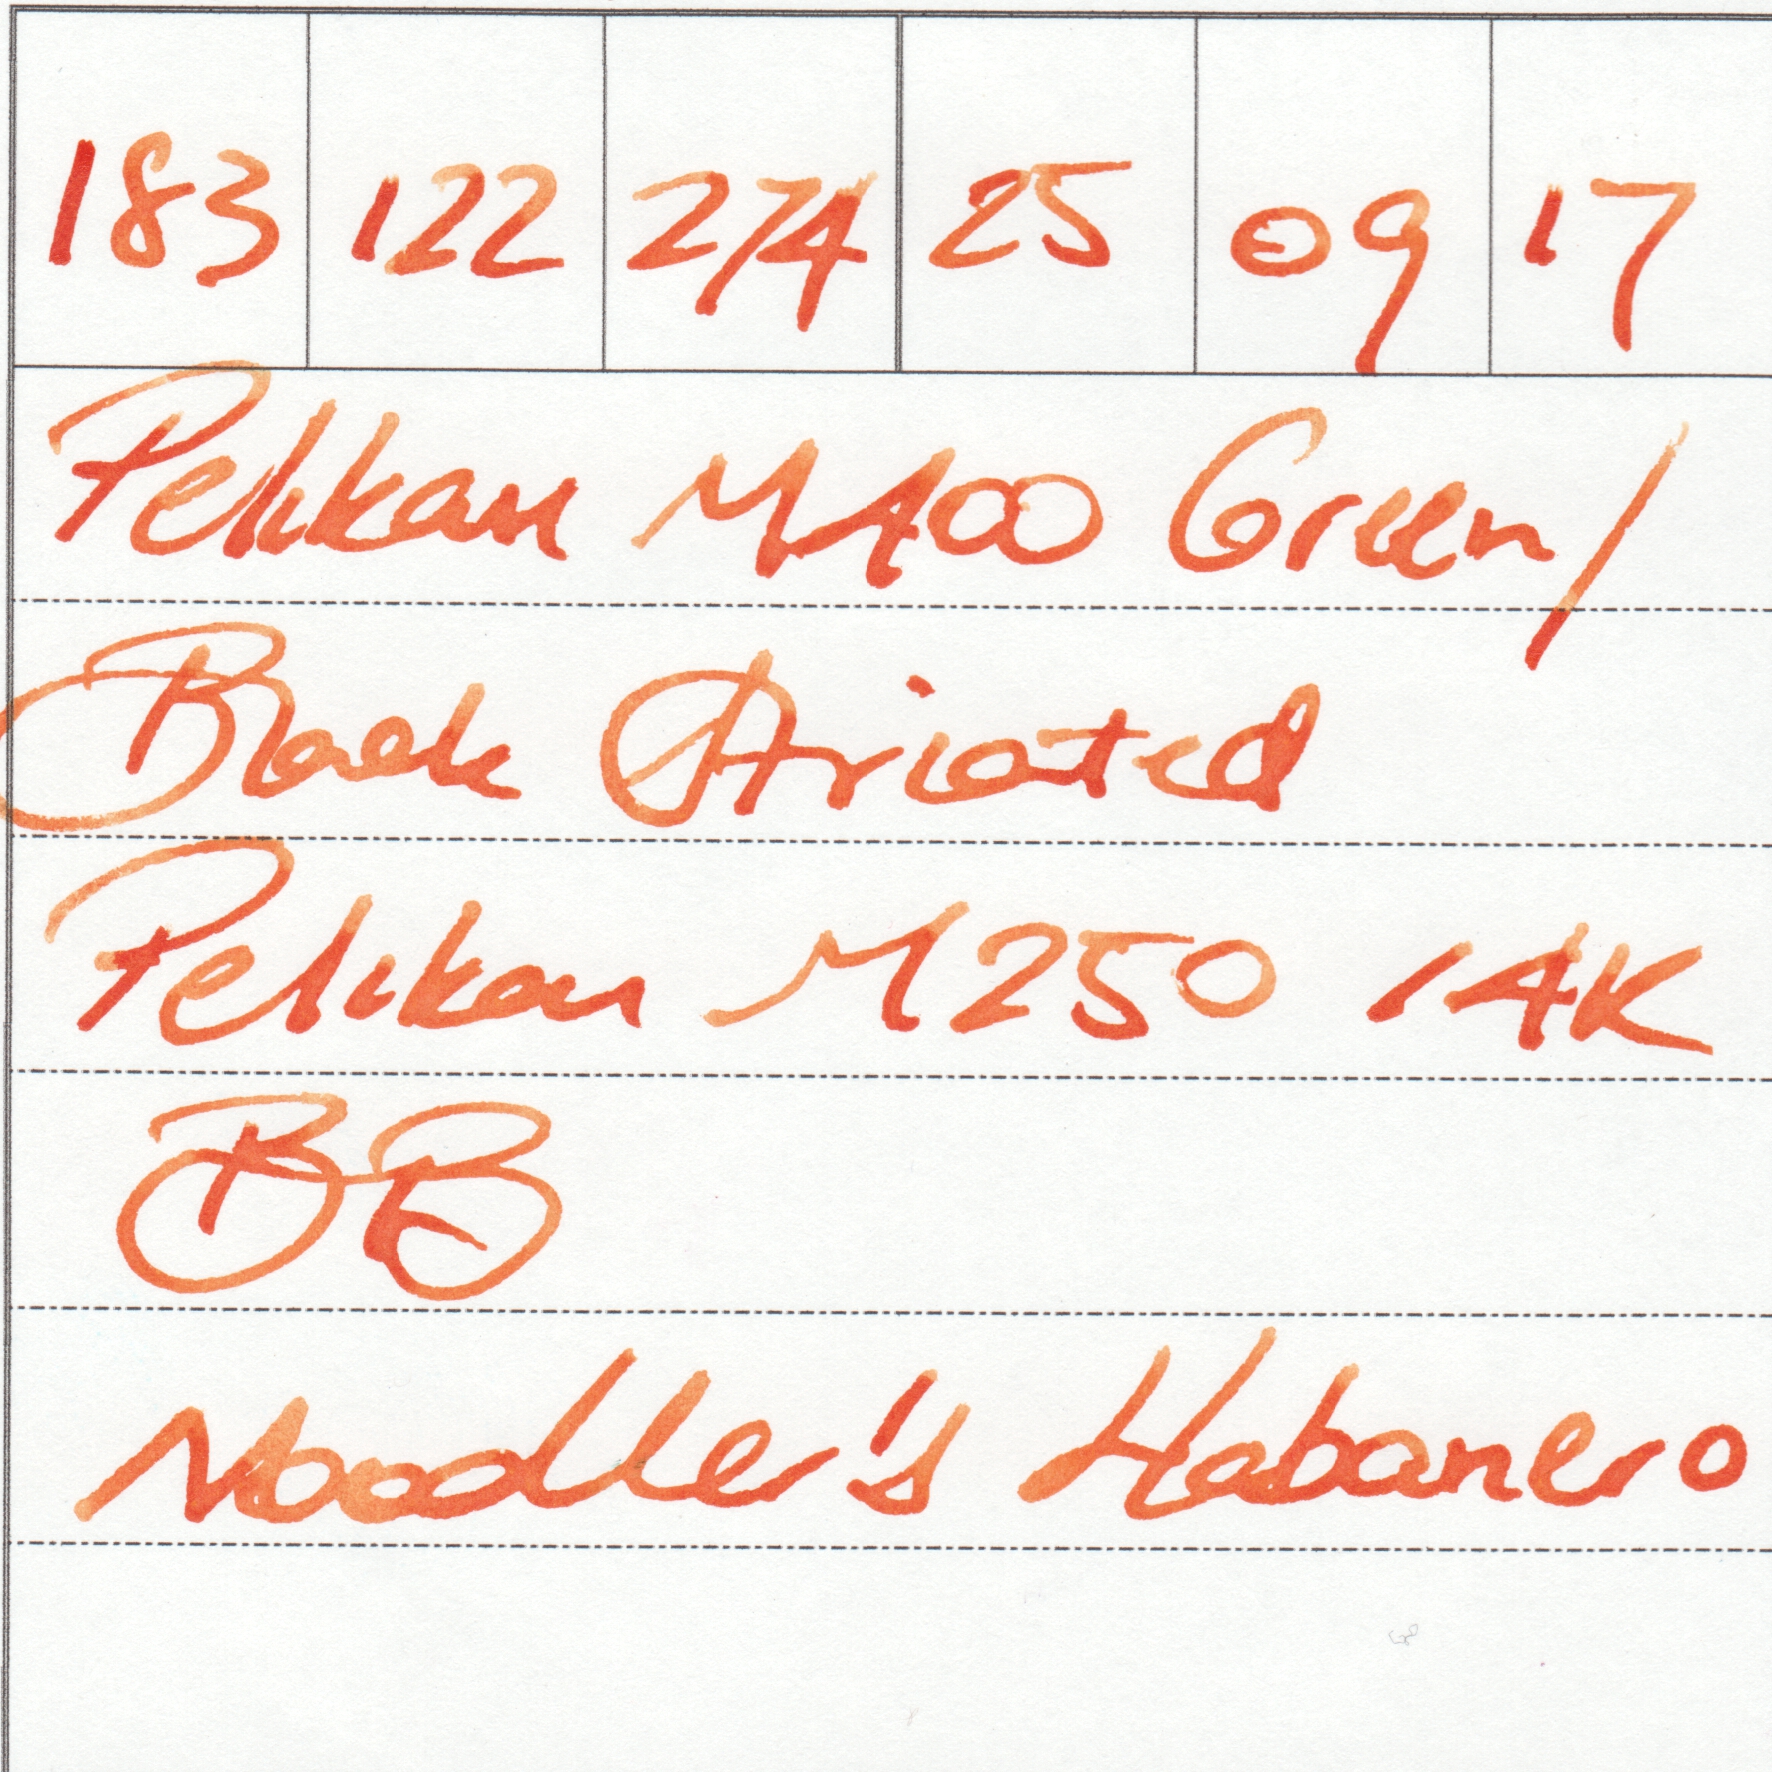 183 122 274 25 09 17
Pelikan M400 Green/
Black Striated
Pelikan M250 14K
BB
Noodler's Habanero